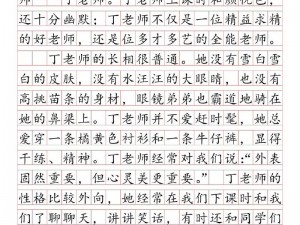 丁老师。丁老师上课时和颜悦色，
还十分幽默；丁老师不仅是一位精益求精
的好老师，还是位多才多艺的全能老师。
丁老师的长相很普通。她没有雪白雪
白的皮肤，没有水汪汪的大眼睛，也没有
高挑苗条的身材，眼镜弟弟也霸道地骑在
她的鼻梁上。丁老师并不爱赶时髦，她总
爱穿一条橘黄色衬衫和一条牛仔裤，显得
干练、精神。丁老师经常对我们说：“外表
固然重要，但心灵美更重要。” 丁老师的
性格比较外向，她经常在我们下课时和我
们了聊聊天，讲讲笑话，有时还和同学们